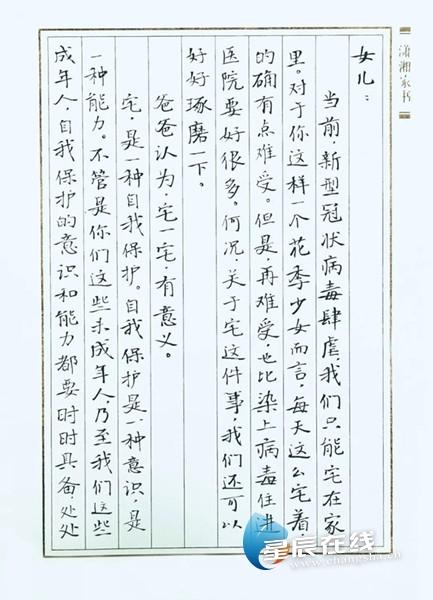 潇湘家书
女儿：
当前，新型冠状病毒肆虐，我们只能宅在家
里。对于你这样一个花季少女而言，每天这么宅着，
的确有点难受。但是，再难受，也比染上病毒住进
医院要好很多。何况，关于宅这件事，我们还可以
好好琢磨一下。
爸爸认为，宅一宅，有意义。
宅，是一种自我保护。自我保护是一种意识，是
一种能力。不管是你们这些未成年人，乃至我们这些
成年人，自我保护的意识和能力都要时时具备处处
星辰在线
www.changsha.cn